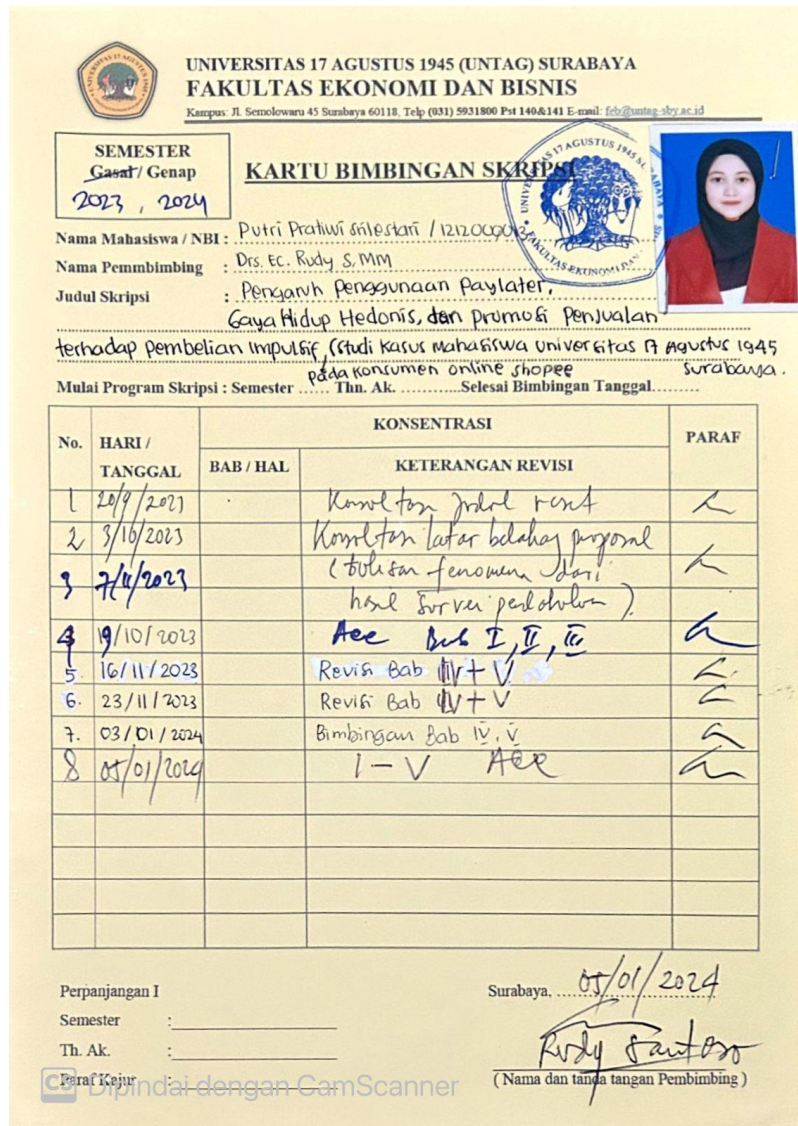 UNIVERSITAS 17 AGUSTUS 1945 (UNTAG) SURABAYA
FAKULTAS EKONOMI DAN BISNIS
Kampus: Jl. Semolowaru 45 Surabaya 60118, Telp (031) 5931800 Pst 140&141 E-mail: feb@untag-sby.ac.id
SEMESTER
Gasal / Genap
2023, 2024
KARTU BIMBINGAN SKRIPSI
Nama Mahasiswa / NBI : Putri Pratiwi Srilestari /
Nama Pemmbimbing : Drs. Ec. Rudy S, MM
Judul Skripsi : Pengaruh Penggunaan Paylater,
Gaya Hidup Hedonis, dan Promosi Penjualan
terhadap Pembelian Impulsif, (Studi Kasus Mahasiswa Universitas 17 Agustus 1945
pada Konsumen online shopee Surabaya.
Mulai Program Skripsi : Semester ...... Thn. Ak. ............Selesai Bimbingan Tanggal.........
No. HARI / TANGGAL KONSENTRASI PARAF
BAB / HAL KETERANGAN REVISI
1 20/9/2023
2 3/10/2023 latar proposal
3 7/11/2023 (tulisan fenomena dari
hasil survei
4 19/10/2023 Acc Bab I, II, III
5. 16/11/2023 Revisi Bab IV + V
6. 23/11/2023 Revisi Bab IV + V
7. 03/01/2024 Bimbingan Bab IV, V
8 05/01/2024 I - V Acc
Perpanjangan I
Semester :
Th. Ak. :
Paraf Kajur :
Surabaya, 05/01/2024
Rudy Santoso
( Nama dan tanda tangan Pembimbing )
CS Dipindai dengan CamScanner